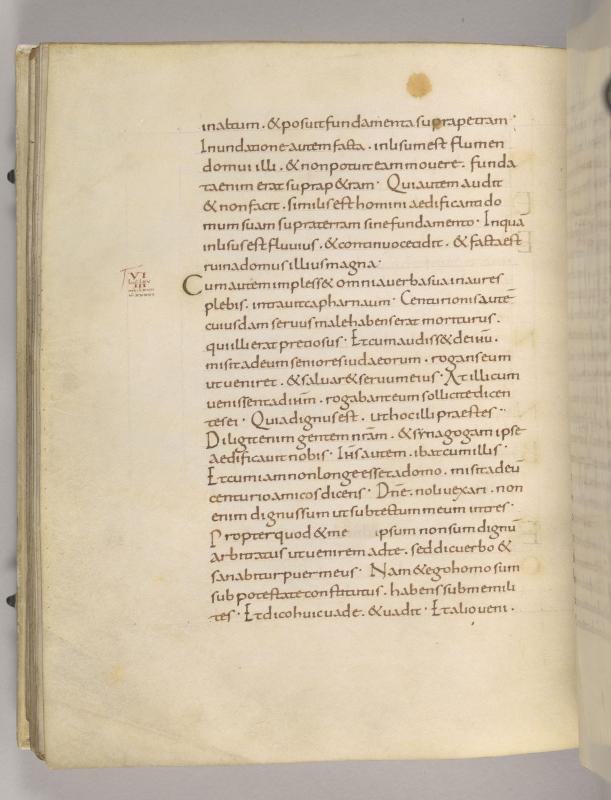 in altum . & posuit fundamenta supra petram .
Inundatione autem facta . inlisum est flumen
domui illi . & non potuit eam mouere . funda
ta enim erat supra p&ram . Qui autem audit
& non facit . similis est homini aedificanti do
mum suam supra terram sine fundamento . In quā
inlisus est fluuius . & continuo cecidit . & facta est
ruina domus illius magna .
VI
III
Cum autem impless& omnia uerba sua in aures
plebis . intrauit capharnaum . Centurionis autē
cuiusdam seruus male habens erat moriturus .
qui illi erat pretiosus . Et cum audiss& de ihū .
misit ad eum seniores iudaeorum . rogans eum
ut ueniret . & saluar& seruum eius . At illi cum
uenissent ad ihm̄ . rogabant eum sollicite dicen
tes ei . Quia dignus est . ut hoc illi praestes .
Diligit enim gentem nr̄am . & synagogam ipse
aedificauit nobis . Ihs̄ autem . ibat cum illis .
Et cum iam non longe esset a domo . misit ad eū
centurio amicos dicens . Dn̄e . noli uexari . non
enim dignus sum ut sub tectum meum intres .
Propter quod & me ipsum non sum dignū
arbitratus ut uenirem ad te . sed dic uerbo &
sanabitur puer meus . Nam & ego homo sum
sub potestate constitutus . habens sub me mili
tes . Et dico huic uade . & uadit . Et alio ueni .